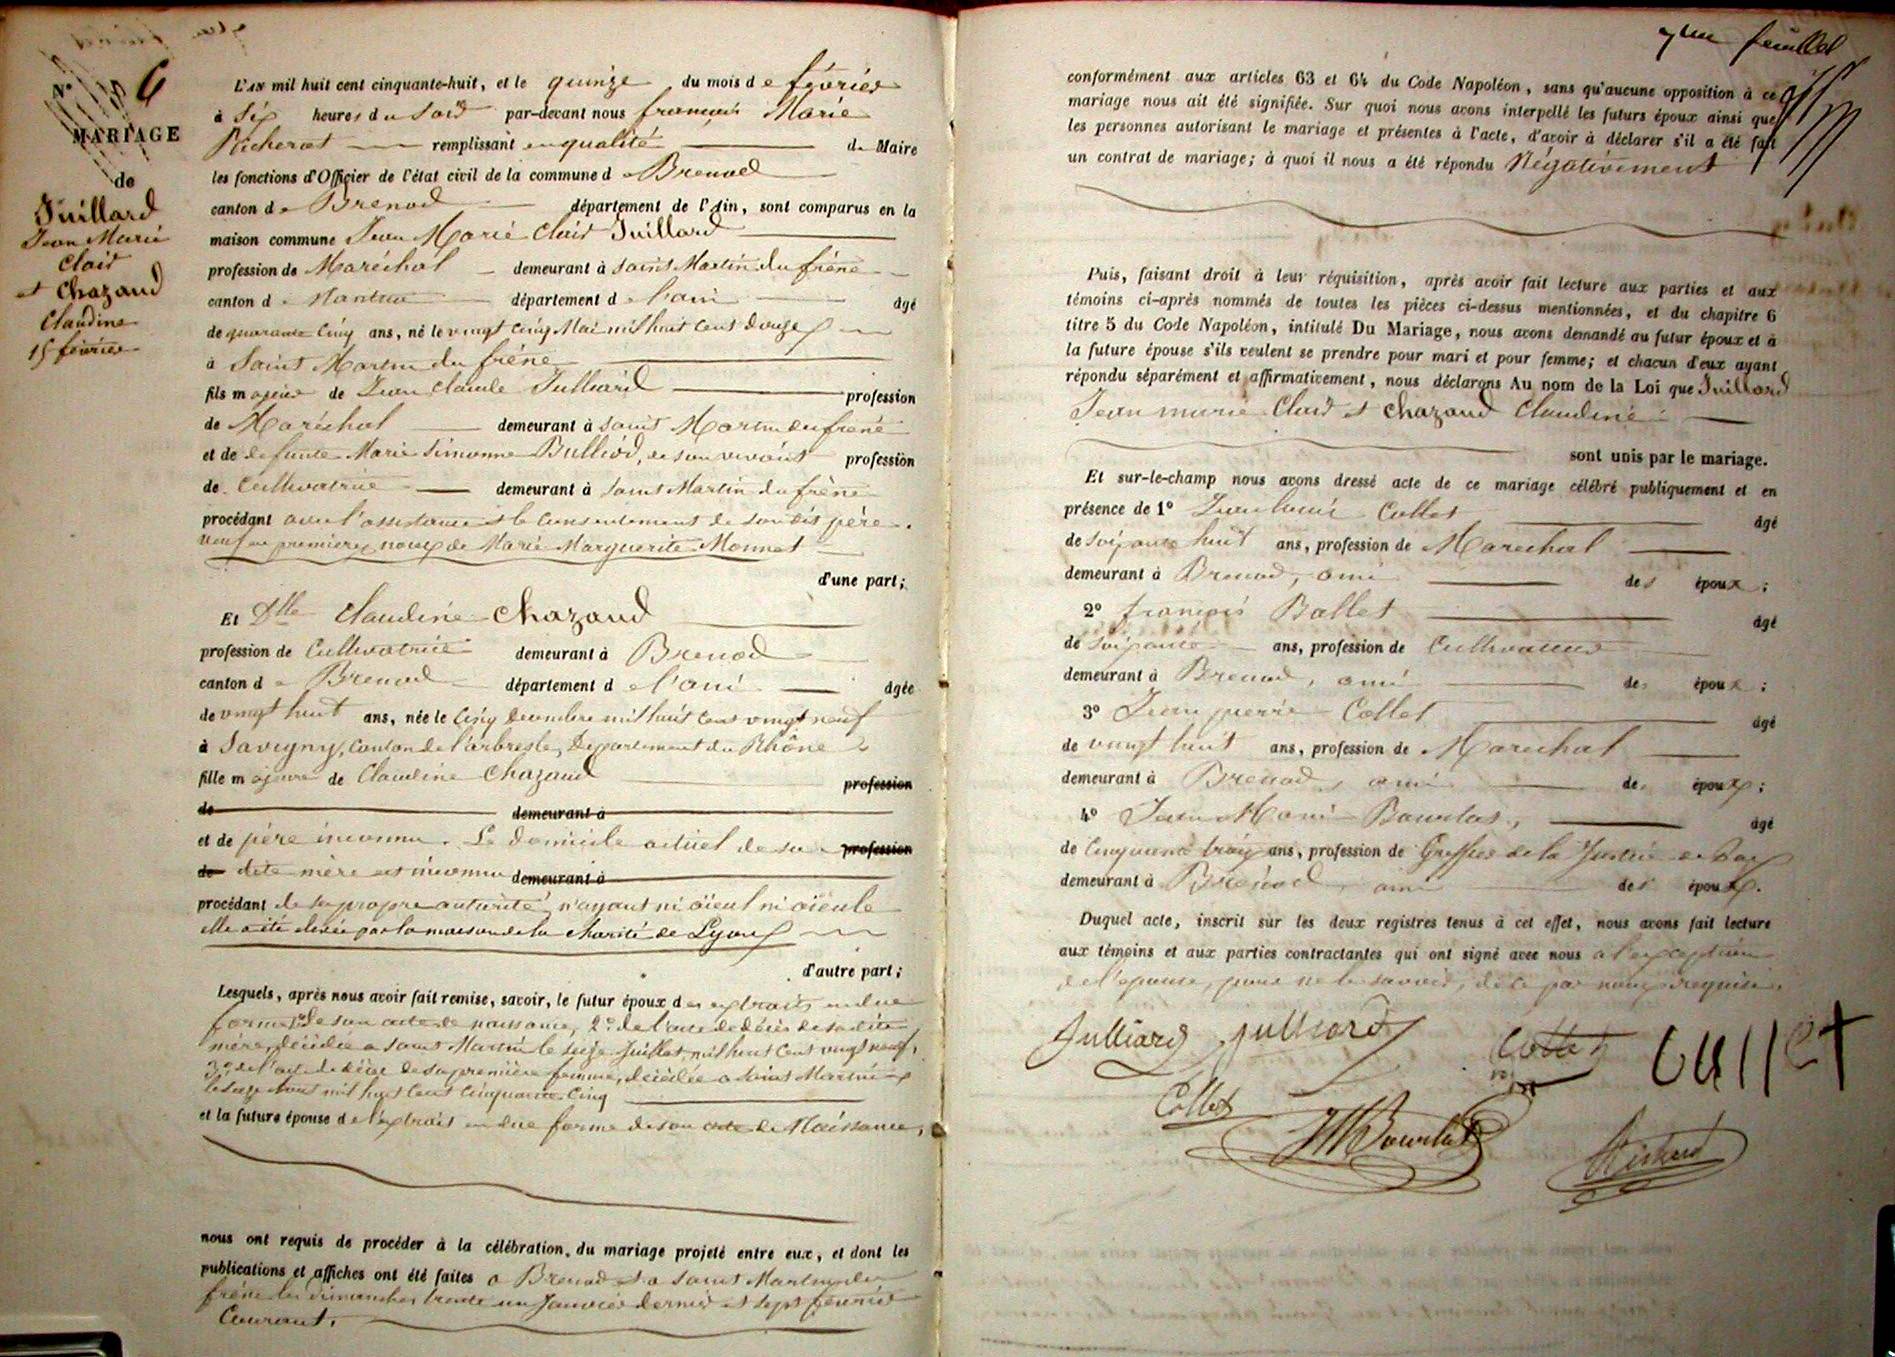 N° 6
MARIAGE
de
Juillard
Jean Marie
Clair
et Chazaud
Claudine
15 février
L'AN mil huit cent cinquante-huit, et le quinze du mois de février
à Six heures du Soir par-devant nous françois Marie
remplissant en qualité de Maire
les fonctions d'Officier de l'état civil de la commune de Brenod
canton de Brenod département de l'Ain, sont comparus en la
maison commune Jean Marie Clair Juillard
profession de Maréchal demeurant à saint Martin du frêne
canton de Nantua département de l'ain âgé
de quarante Cinq ans, né le vingt Cinq Mai mil huit Cent douze
à Saint Martin du frêne
fils majeur de Jean Claude Julliard profession
de Maréchal demeurant à saint Martin du frêne
et de défunte Marie Simonne Bulliod, de son vivant profession
de Cultivatrice demeurant à Saint Martin du frêne
procédant avec l'assistance et le Consentement de son dit père.
veuf en premières noces de Marie Marguerite Monnet
d'une part;
Et Dlle Claudine Chazaud
profession de Cultivatrice demeurant à Brenod
canton de Brenod département de l'ain âgée
de vingt huit ans, née le Cinq décembre mil huit cent vingt neuf
à Savigny, Canton de l'arbresle, Département du Rhône
fille majeure de Claudine Chazaud profession
de demeurant à
et de père inconnu. Le domicile actuel de sa profession
de dite mère est inconnu demeurant à
procédant de sa propre autorité, n'ayant ni aïeul ni aïeule
elle a été élevée par la maison de la Charité de Lyon
d'autre part;
Lesquels, après nous avoir fait remise, savoir, le futur époux des extraits en due
forme 1° de son acte de naissance, 2° de l'acte de décès de sa dite
mère, décédée à saint Martin le seize Juillet mil huit Cent vingt neuf,
3° de l'acte de décès de sa première femme, décédée à saint Martin
le mil huit Cent Cinquante Cinq
et la future épouse de l'extrait en due forme de son acte de Naissance,
nous ont requis de procéder à la célébration du mariage projeté entre eux, et dont les
publications et affiches ont été faites à Brenod et à saint Martin du
frêne les dimanches trente un Janvier dernier et sept février
Courant.
7me feuillet
conformément aux articles 63 et 64 du Code Napoléon, sans qu'aucune opposition à ce
mariage nous ait été signifiée. Sur quoi nous avons interpellé les futurs époux ainsi que
les personnes autorisant le mariage et présentes à l'acte, d'avoir à déclarer s'il a été fait
un contrat de mariage; à quoi il nous a été répondu Négativement
Puis, faisant droit à leur réquisition, après avoir fait lecture aux parties et aux
témoins ci-après nommés de toutes les pièces ci-dessus mentionnées, et du chapitre 6
titre 5 du Code Napoléon, intitulé Du Mariage, nous avons demandé au futur époux et à
la future épouse s'ils veulent se prendre pour mari et pour femme; et chacun d'eux ayant
répondu séparément et affirmativement, nous déclarons Au nom de la Loi que Juillard
Jean marie Clair et Chazaud Claudine
sont unis par le mariage.
Et sur-le-champ nous avons dressé acte de ce mariage célébré publiquement et en
présence de 1° Jean Louis Collet âgé
de soixante huit ans, profession de Marechal
demeurant à Brenod, ami des époux;
2° françois Ballet âgé
de soixante ans, profession de Cultivateur
demeurant à Brenod, ami des époux;
3° Jean pierre Collet âgé
de vingt huit ans, profession de Marechal
demeurant à Brenod, ami des époux;
4° Jean Marie Bourlas, âgé
de Cinquante trois ans, profession de Greffier de la Justice de Paix
demeurant à Brenod, ami des époux.
Duquel acte, inscrit sur les deux registres tenus à cet effet, nous avons fait lecture
aux témoins et aux parties contractantes qui ont signé avec nous à l'exception
de l'épouse, pour ne le savoir, de ce par nous requise.
Julliard Julliard Collet
Collet JMBourlas